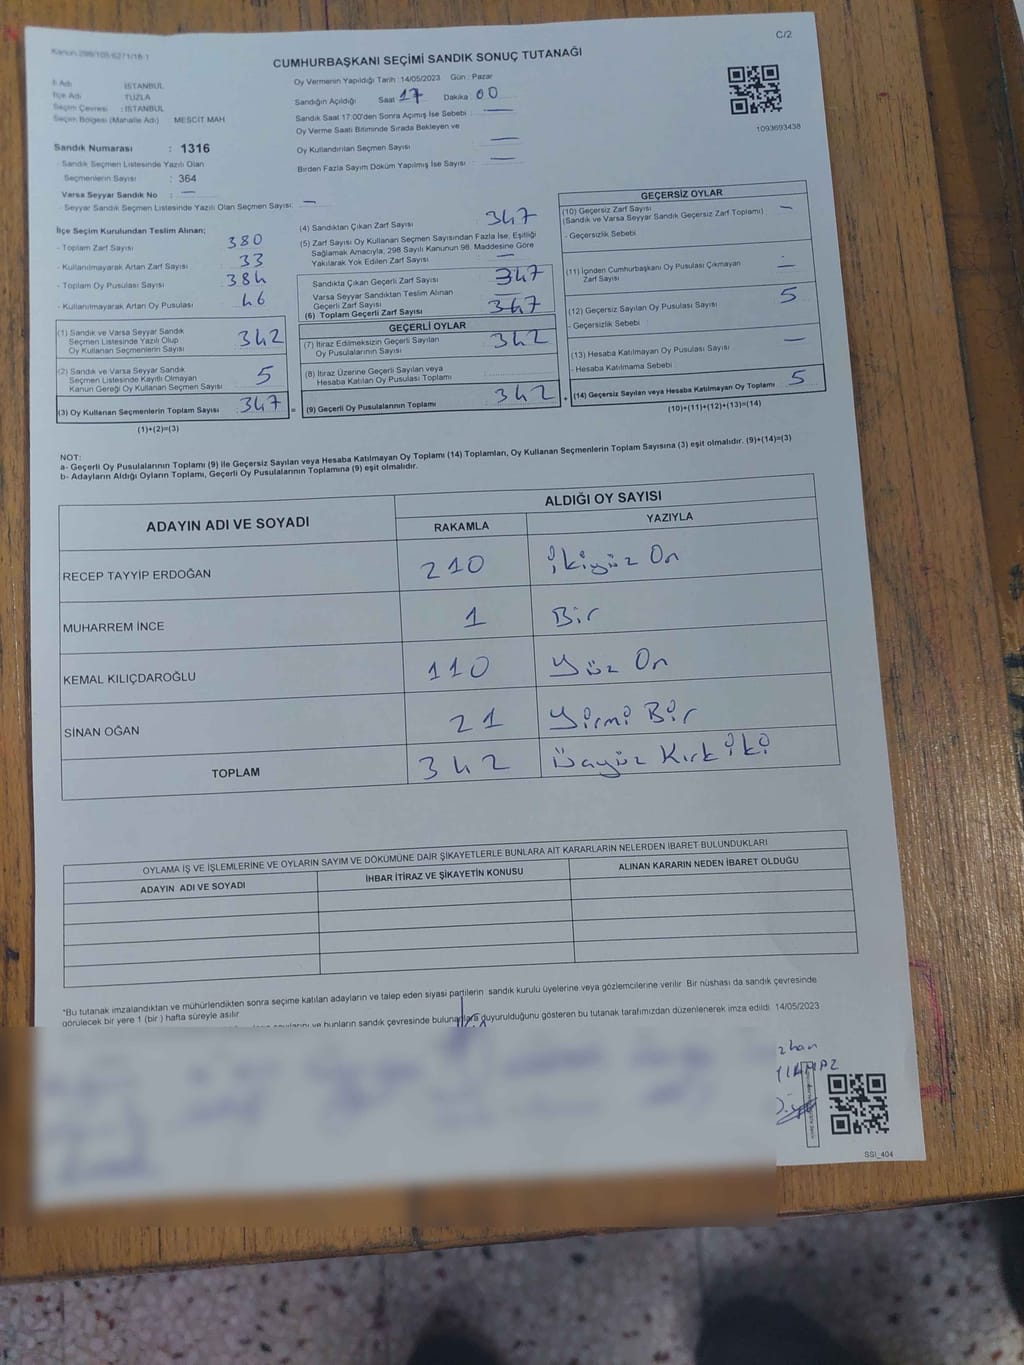 Kanun 298/105-6271/18-1
C/2
CUMHURBAŞKANI SEÇİMİ SANDIK SONUÇ TUTANAĞI
İl Adı : İSTANBUL
İlçe Adı : TUZLA
Seçim Çevresi : İSTANBUL
Seçim Bölgesi (Mahalle Adı) : MESCİT MAH
Sandık Numarası : 1316
- Sandık Seçmen Listesinde Yazılı Olan
Seçmenlerin Sayısı : 364
Varsa Seyyar Sandık No : —
- Seyyar Sandık Seçmen Listesinde Yazılı Olan Seçmen Sayısı: —
Oy Vermenin Yapıldığı Tarih :14/05/2023 Gün : Pazar
Sandığın Açıldığı Saat 17 Dakika 00
Sandık Saat 17:00'den Sonra Açılmış İse Sebebi : —
Oy Verme Saati Bitiminde Sırada Bekleyen ve
Oy Kullandırılan Seçmen Sayısı : —
Birden Fazla Sayım Döküm Yapılmış İse Sayısı : —
1093693438
İlçe Seçim Kurulundan Teslim Alınan;
- Toplam Zarf Sayısı : 380
- Kullanılmayarak Artan Zarf Sayısı : 33
- Toplam Oy Pusulası Sayısı : 384
- Kullanılmayarak Artan Oy Pusulası : 46
(1) Sandık ve Varsa Seyyar Sandık
Seçmen Listesinde Yazılı Olup
Oy Kullanan Seçmenlerin Sayısı : 342
(2) Sandık ve Varsa Seyyar Sandık
Seçmen Listesinde Kayıtlı Olmayan
Kanun Gereği Oy Kullanan Seçmen Sayısı : 5
(3) Oy Kullanan Seçmenlerin Toplam Sayısı : 347 =
(1)+(2)=(3)
(4) Sandıktan Çıkan Zarf Sayısı : 347
(5) Zarf Sayısı Oy Kullanan Seçmen Sayısından Fazla İse, Eşitliği
Sağlamak Amacıyla, 298 Sayılı Kanunun 98. Maddesine Göre
Yakılarak Yok Edilen Zarf Sayısı : —
Sandıkta Çıkan Geçerli Zarf Sayısı : 347
Varsa Seyyar Sandıktan Teslim Alınan
Geçerli Zarf Sayısı : —
(6) Toplam Geçerli Zarf Sayısı : 347
GEÇERLİ OYLAR
(7) İtiraz Edilmeksizin Geçerli Sayılan
Oy Pusulalarının Sayısı : 342
(8) İtiraz Üzerine Geçerli Sayılan veya
Hesaba Katılan Oy Pusulası Toplamı :
(9) Geçerli Oy Pusulalarının Toplamı : 342 +
GEÇERSİZ OYLAR
(10) Geçersiz Zarf Sayısı
(Sandık ve Varsa Seyyar Sandık Geçersiz Zarf Toplamı) : —
- Geçersizlik Sebebi :
(11) İçinden Cumhurbaşkanı Oy Pusulası Çıkmayan
Zarf Sayısı : —
(12) Geçersiz Sayılan Oy Pusulası Sayısı : 5
- Geçersizlik Sebebi :
(13) Hesaba Katılmayan Oy Pusulası Sayısı : —
- Hesaba Katılmama Sebebi :
(14) Geçersiz Sayılan veya Hesaba Katılmayan Oy Toplamı : 5
(10)+(11)+(12)+(13)=(14)
NOT:
a- Geçerli Oy Pusulalarının Toplamı (9) ile Geçersiz Sayılan veya Hesaba Katılmayan Oy Toplamı (14) Toplamları, Oy Kullanan Seçmenlerin Toplam Sayısına (3) eşit olmalıdır. (9)+(14)=(3)
b- Adayların Aldığı Oyların Toplamı, Geçerli Oy Pusulalarının Toplamına (9) eşit olmalıdır.
ADAYIN ADI VE SOYADI
ALDIĞI OY SAYISI
RAKAMLA YAZIYLA
RECEP TAYYİP ERDOĞAN 210 İkiyüz On
MUHARREM İNCE 1 Bir
KEMAL KILIÇDAROĞLU 110 Yüz On
SİNAN OĞAN 21 Yirmi Bir
TOPLAM 342 Üçyüz Kırk iki
OYLAMA İŞ VE İŞLEMLERİNE VE OYLARIN SAYIM VE DÖKÜMÜNE DAİR ŞİKAYETLERLE BUNLARA AİT KARARLARIN NELERDEN İBARET BULUNDUKLARI
ADAYIN ADI VE SOYADI İHBAR İTİRAZ VE ŞİKAYETİN KONUSU ALINAN KARARIN NEDEN İBARET OLDUĞU
"Bu tutanak imzalandıktan ve mühürlendikten sonra seçime katılan adayların ve talep eden siyasi partilerin sandık kurulu üyelerine veya gözlemcilerine verilir. Bir nüshası da sandık çevresinde
görülecek bir yere 1 (bir ) hafta süreyle asılır.
ve bunların sandık çevresinde bulunanlara duyurulduğunu gösteren bu tutanak tarafımızdan düzenlenerek imza edildi. 14/05/2023
SSI_404